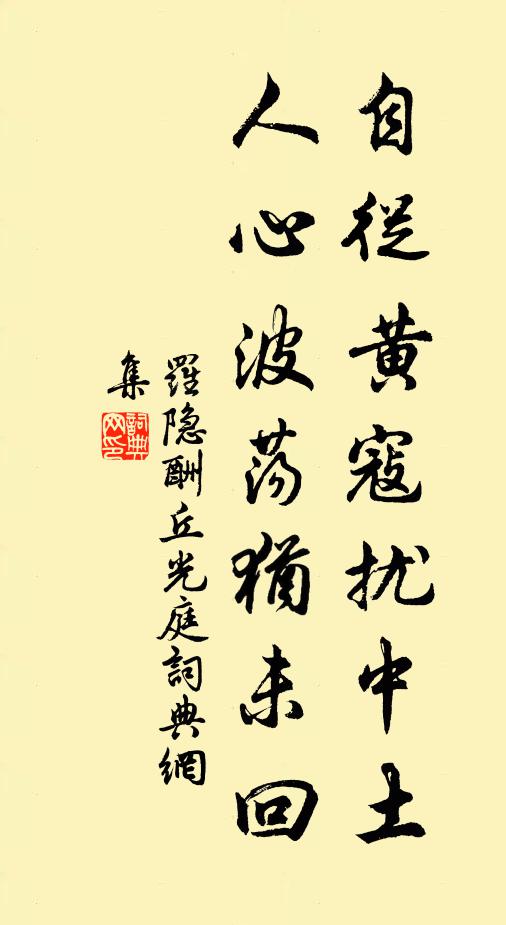 自從黃寇扰中土
人心波荡猶未回
羅隐酬丘光庭詞典網
集
詞典网印